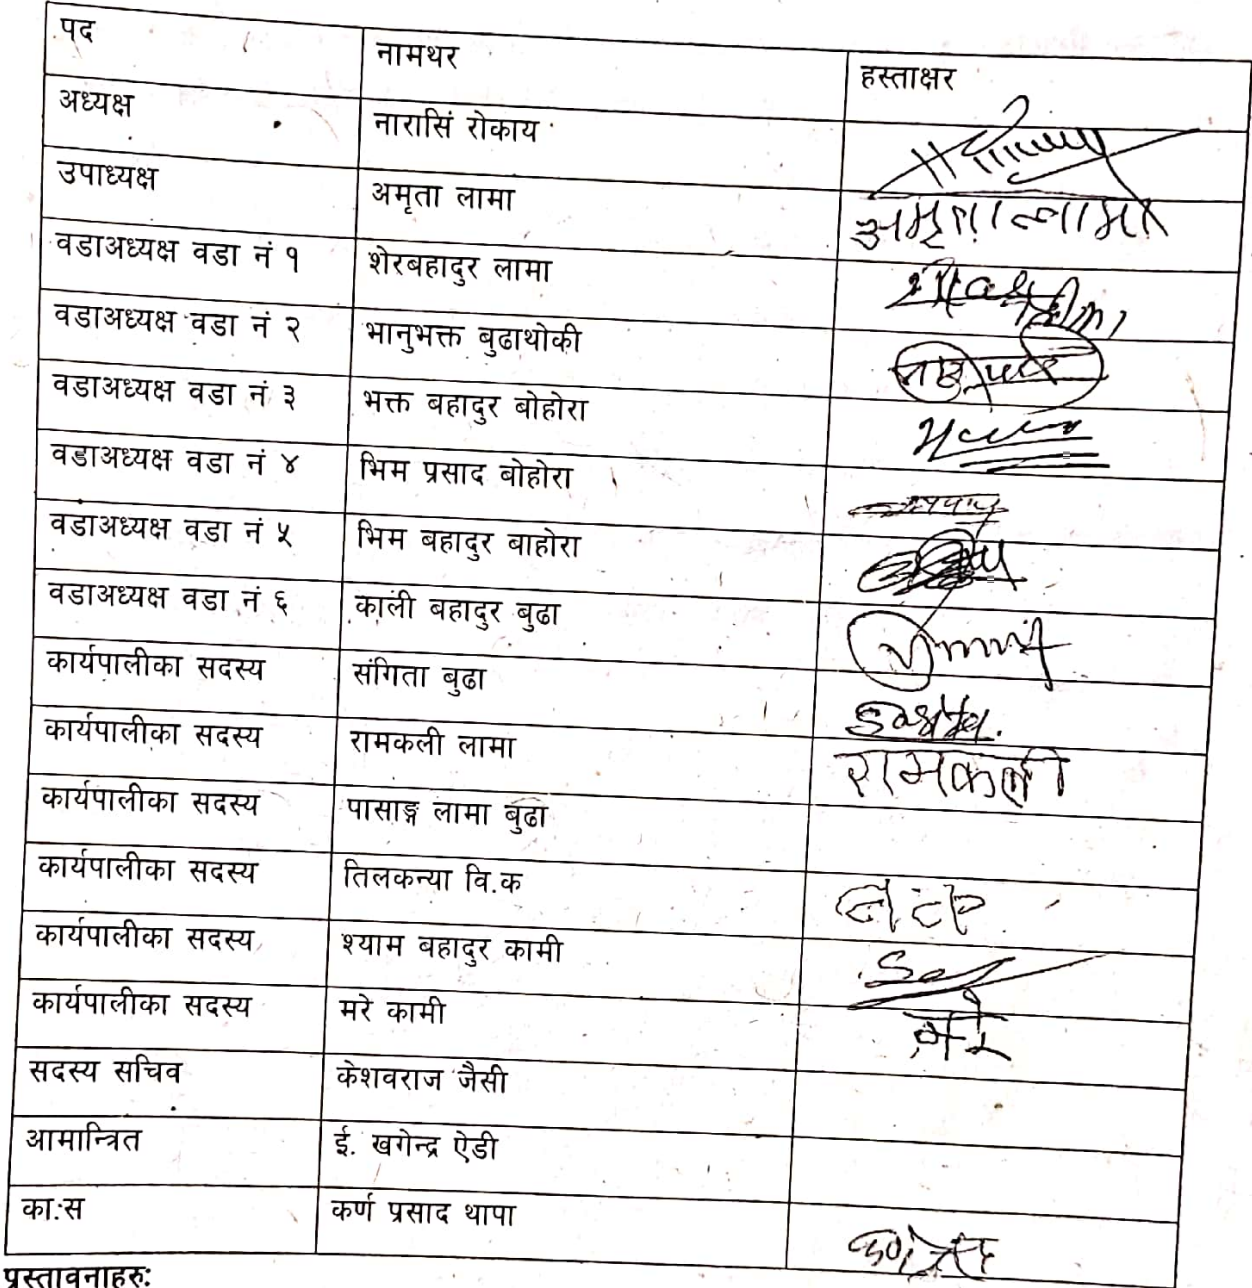 पद नामथर हस्ताक्षर
अध्यक्ष नारासिं रोकाय
उपाध्यक्ष अमृता लामा अमृता लामा
वडाअध्यक्ष वडा नं १ शेरबहादुर लामा
वडाअध्यक्ष वडा नं २ भानुभक्त बुढाथोकी
वडाअध्यक्ष वडा नं ३ भक्त बहादुर बोहोरा
वडाअध्यक्ष वडा नं ४ भिम प्रसाद बोहोरा
वडाअध्यक्ष वडा नं ५ भिम बहादुर बाहोरा
वडाअध्यक्ष वडा नं ६ काली बहादुर बुढा
कार्यपालीका सदस्य संगिता बुढा
कार्यपालीका सदस्य रामकली लामा रामकली
कार्यपालीका सदस्य पासाङ्ग लामा बुढा
कार्यपालीका सदस्य तिलकन्या वि.क
कार्यपालीका सदस्य श्याम बहादुर कामी
कार्यपालीका सदस्य मरे कामी मरे
सदस्य सचिव केशवराज जैसी
आमान्त्रित ई. खगेन्द्र ऐडी
का.स कर्ण प्रसाद थापा
प्रस्तावनाहरु: